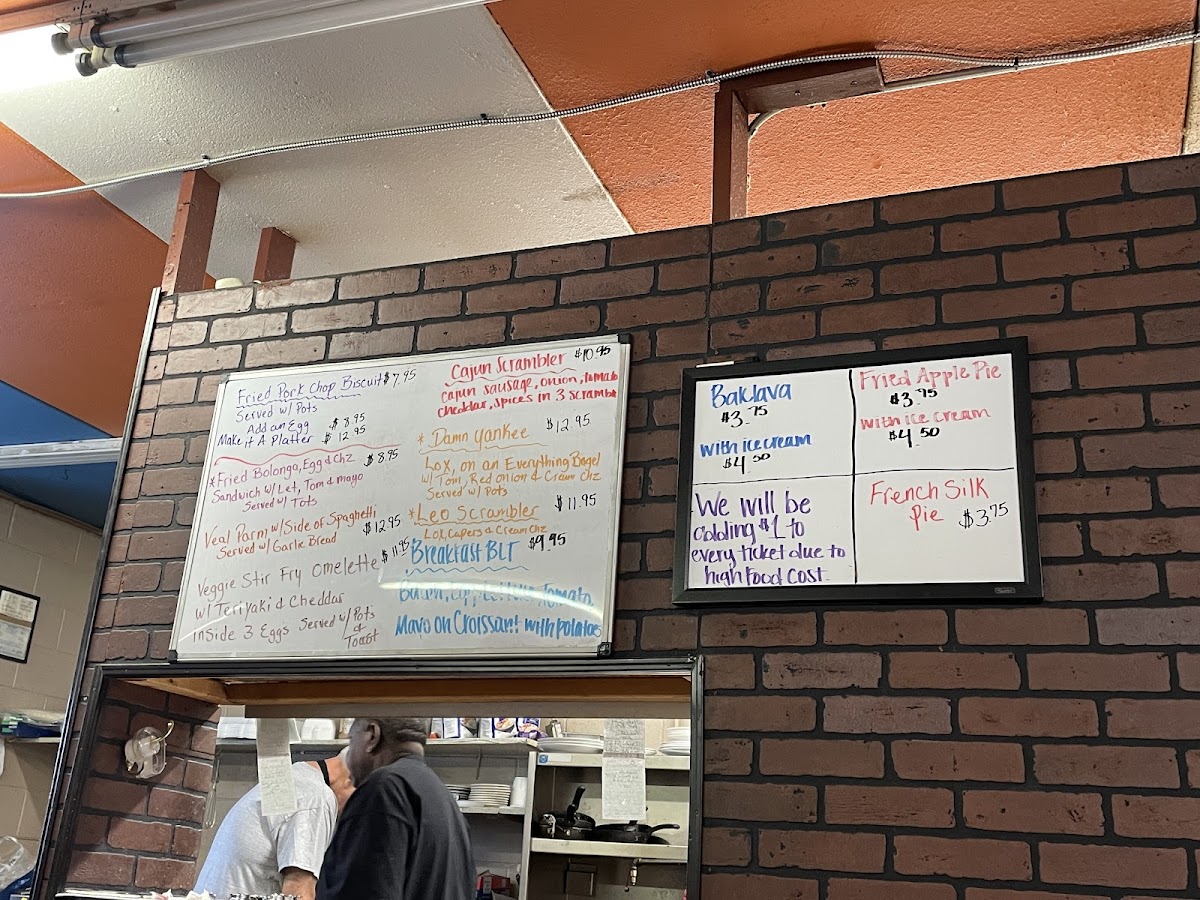 Fried Pork Chop Biscuit $7.95
Served w/ Pots
Add an Egg $8.95
Make it A Platter $12.95
*Fried Bologna, Egg & Chz $8.95
Sandwich w/ Let, Tom & mayo
Served w/ Tots
Veal Parm w/ Side of Spaghetti
Served w/ Garlic Bread $12.95
Veggie Stir Fry Omelette $11.95
w/ Teriyaki & Cheddar
inside 3 Eggs Served w/ Pots
& Toast
Cajun Scrambler $10.95
cajun sausage, onion, tomato
cheddar, spices in 3 scramble
*Damn Yankee $12.95
Lox, on an Everything Bagel
w/ Tom, Red onion & Cream Chz
Served w/ Pots
*Leo Scrambler $11.95
Lox, Capers & Cream Chz
Breakfast BLT $9.95
Bacon, Egg, Lettuce, Tomato,
Mayo on Croissant! with potatoes
Baklava
$3.75
with ice cream
$4.50
Fried Apple Pie
$3.95
with ice cream
$4.50
We will be
adding $1 to
every ticket due to
high Food Cost
French Silk
Pie $3.75